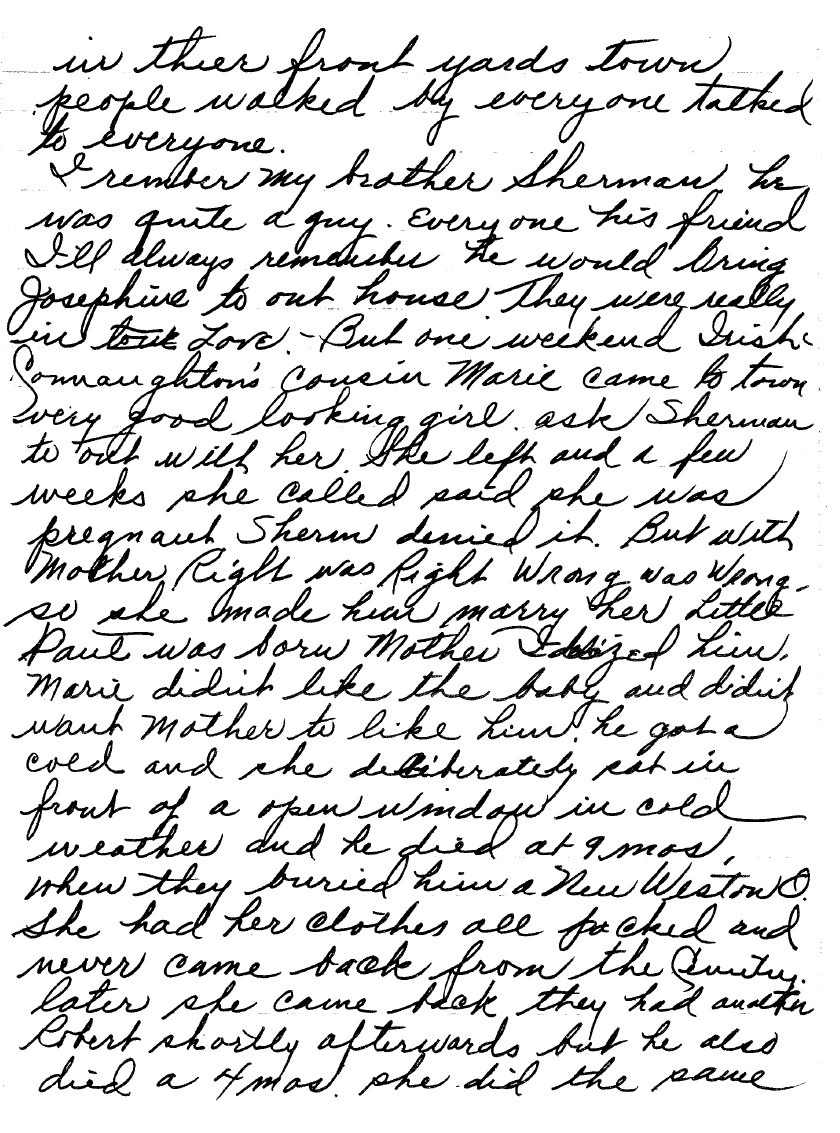 in thier front yards town
people walked by everyone talked
to everyone.
I rember my brother Sherman he
was quite a guy. Everyone his friend
I'll always remember he would bring
Josephine to out house They were really
in Love. - But one weekend Irish
Connaughton's Cousin Marie came to town
very good looking girl. ask Sherman
to out with her. She left and a few
weeks she called said she was
pregnant Sherm denied it. But with
Mother Right was Right Wrong was Wrong -
so she made him marry her Little
Paul was born Mother Idolized him.
Marie didn't like the baby and didn't
want Mother to like him. he got a
cold and she deliberately sat in
front of a open window in cold
weather and he died at 9 mos,
when they buried him a New Weston O.
She had her clothes all packed and
never came back from the
later she came back they had another
Robert shortly afterwards but he also
died a 4 mos. she did the same